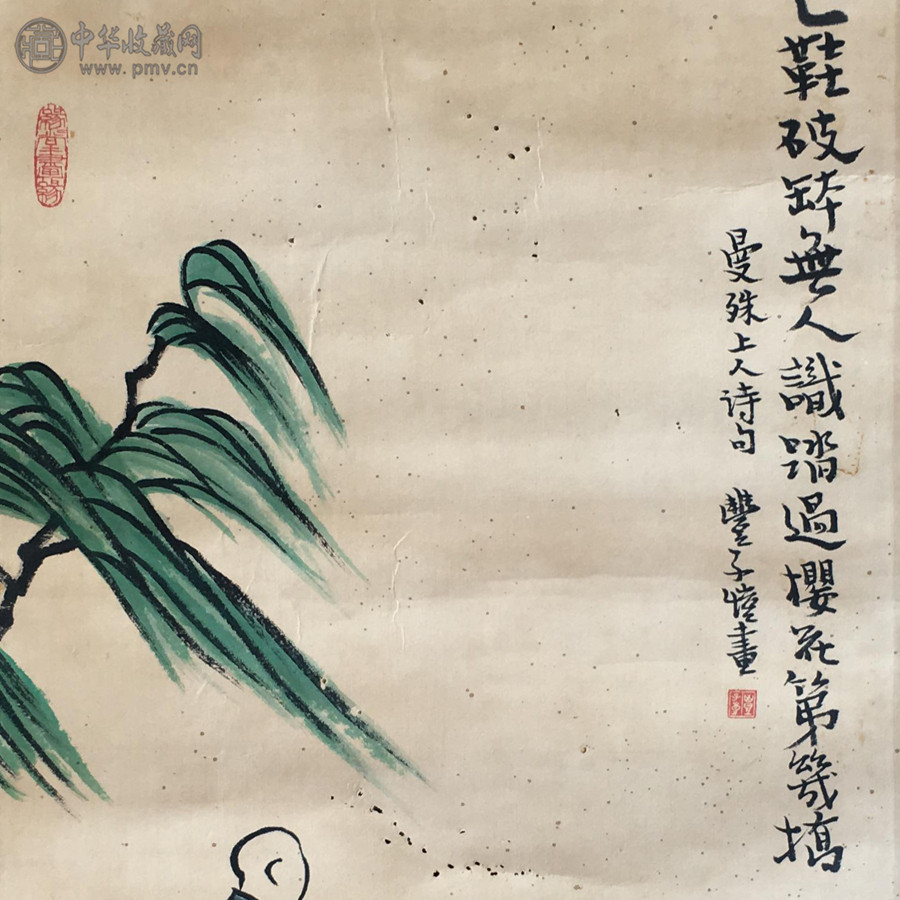 中华收藏网
www.pmv.cn
鞋破缽無人識踏過櫻花第幾橋
曼殊上人诗句 豐子愷畫